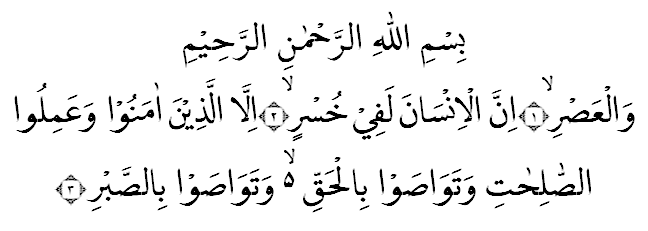 بِسْمِ اللهِ الرَّحْمٰنِ الرَّحِيْمِ
وَالْعَصْرِۙ ﴿١﴾ اِنَّ الْاِنْسَانَ لَفِيْ خُسْرٍۙ ﴿٢﴾ اِلَّا الَّذِيْنَ اٰمَنُوْا وَعَمِلُوا
الصّٰلِحٰتِ وَتَوَاصَوْا بِالْحَقِّ ۙ۵ وَتَوَاصَوْا بِالصَّبْرِ ﴿٣﴾